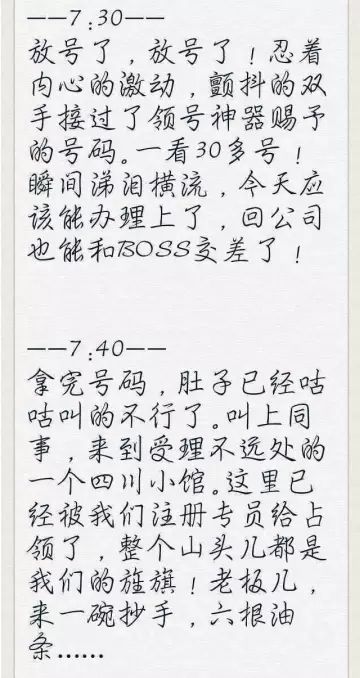 ——7:30——
放号了，放号了！忍着
内心的激动，颤抖的双
手接过了领号神器赐予
的号码。一看30多号！
瞬间涕泪横流，今天应
该能办理上了，回公司
也能和BOSS交差了！
——7:40——
拿完号码，肚子已经咕
咕叫的不行了。叫上同
事，来到受理不远处的
一个四川小馆。这里已
经被我们注册专员给占
领了，整个山头儿都是
我们的旌旗！老板儿，
来一碗抄手，六根油
条……